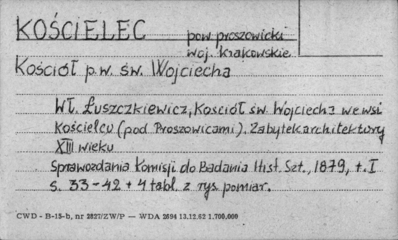 KOŚCIELEC pow. proszowicki
woj. krakowskie
Kościół p.w. św. Wojciecha
Wł. Łuszczkiewicz, Kościół św. Wojciecha we wsi
Kościelcu (pod Proszowicami). Zabytek architektury
XIII wieku
Sprawozdania Komisji do Badania Hist. Szt., 1879, t. I
s. 33-42 + 4 tabl. z rys. pomiar.
CWD - B-15-b, nr 2827/ZW/P — WDA 2694 13.12.62 1.700.000